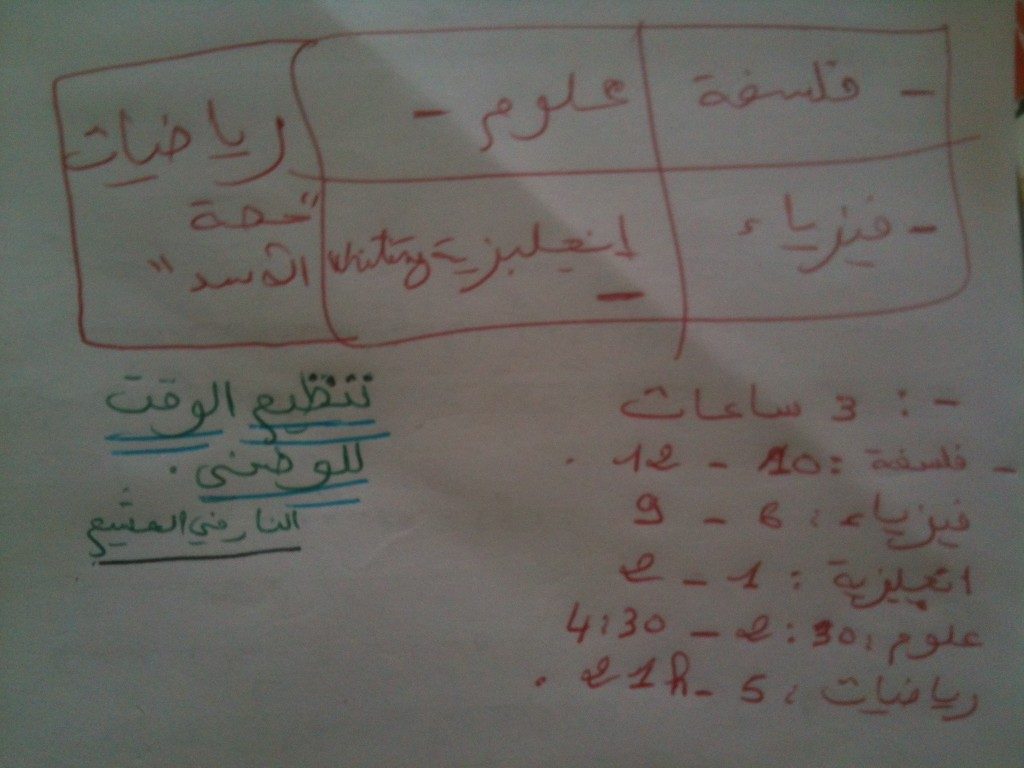 - فلسفة
علوم -
رياضيات
- فيزياء
انجليزية writing -
"حصة
الأسد"
- : 3 ساعات
- فلسفة : 10 - 12 .
فيزياء : 6 - 9
انجليزية : 1 - 2
علوم : 2:30 - 4:30
رياضيات : 5 - 21h .
تنظيم الوقت
للوطني .
النار في المشيع